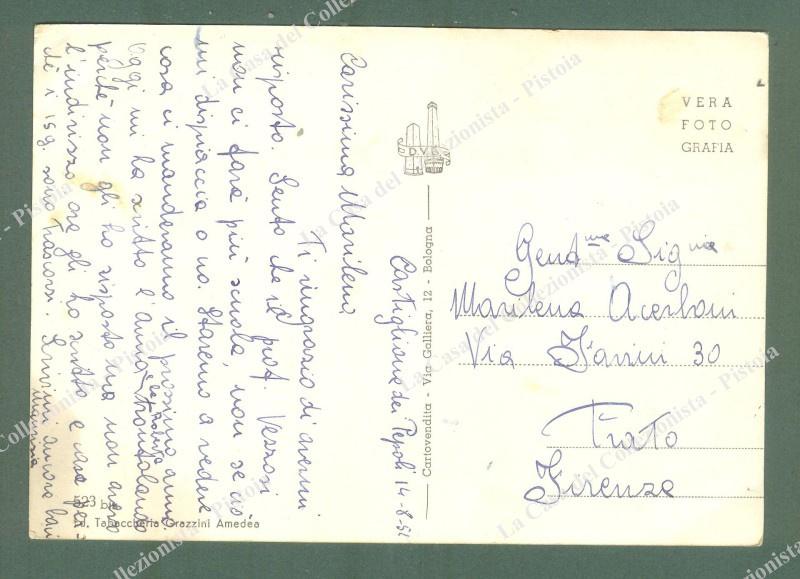 Castiglione dei Pepoli 14-8-51
Carissima Marilena,
Ti ringrazio di avermi
risposto. Sento che il prof. Vezzosi
non ci farà più scuola, non se ciò
mi dispiaccia o no. Staremo a vedere
cosa ci manderanno il prossimo anno
Oggi mi ha scritto l'amo
perchè non gli ho risposto ma non avevo
l'indirizzo ora gli ho scritto e casa per=
chè i 15 g. sono trascorsi. Scrivimi ancora baci
Maurizia
VERA
FOTO
GRAFIA
D.V.B.
Cartovendita - Via Galliera, 12 - Bologna
Gent.ma Sig.na
Marilena Acerboni
Via Fanini 30
Prato
Firenze
523 bis
Ed. Tabaccheria Grazzini Amedea
La Casa del Collezionista - Pistoia